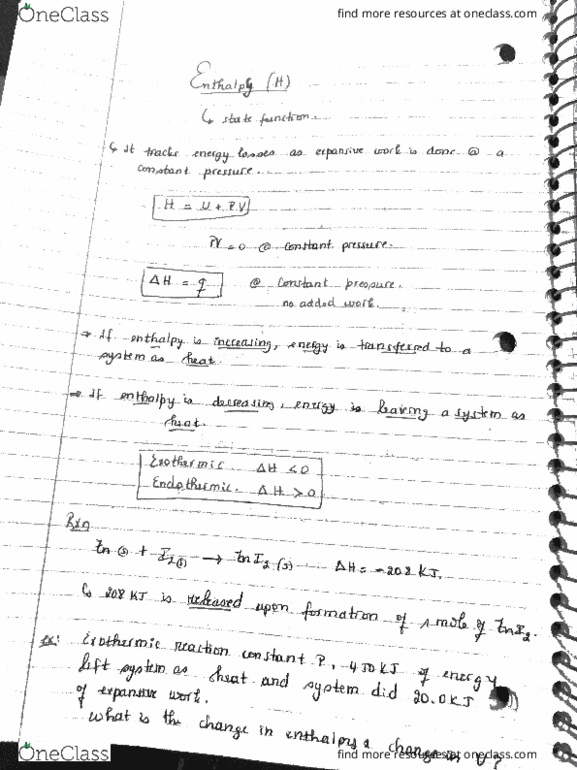 OneClass
find more resources at oneclass.com
Enthalpy (H)
↳ state function.
↳ It tracks energy losses as expansive work is done @ a
constant pressure.
H = U + PV
PV = 0 @ constant pressure.
ΔH = q @ constant pressure.
no added work.
→ If enthalpy is increasing, energy is transferred to a
system as heat
→ If enthalpy is decreasing, energy is leaving a system as
heat.
Exothermic. ΔH < 0
Endothermic. ΔH > 0
Rxn
Zn (s) + I2(s) → ZnI2 (s) ΔH = -208 KJ.
↳ 208 KJ is released upon formation of 1 mole of ZnI2.
ex: Exothermic reaction constant P, 450 KJ of energy
left system as heat and system did 20.0 KJ
of expansive work.
What is the change in enthalpy & change in U?
OneClass
find more resources at oneclass.com